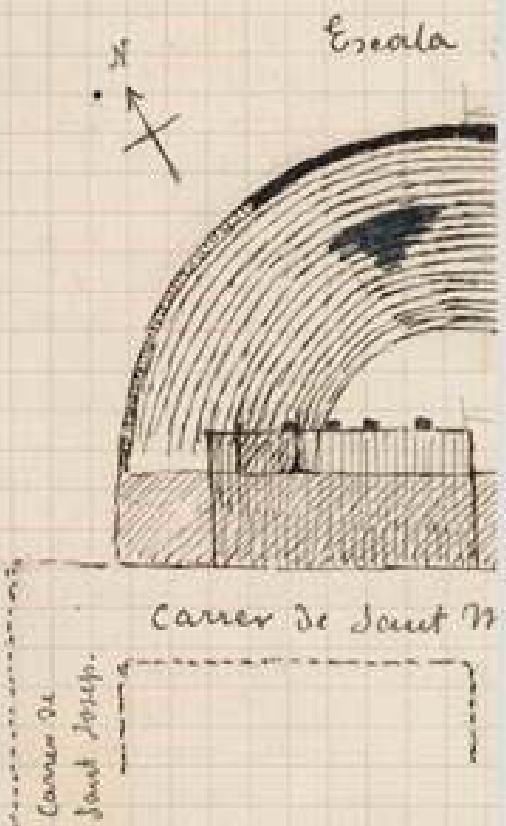 Escala
Carrer de Sant
Carrer de
Sant Josep.